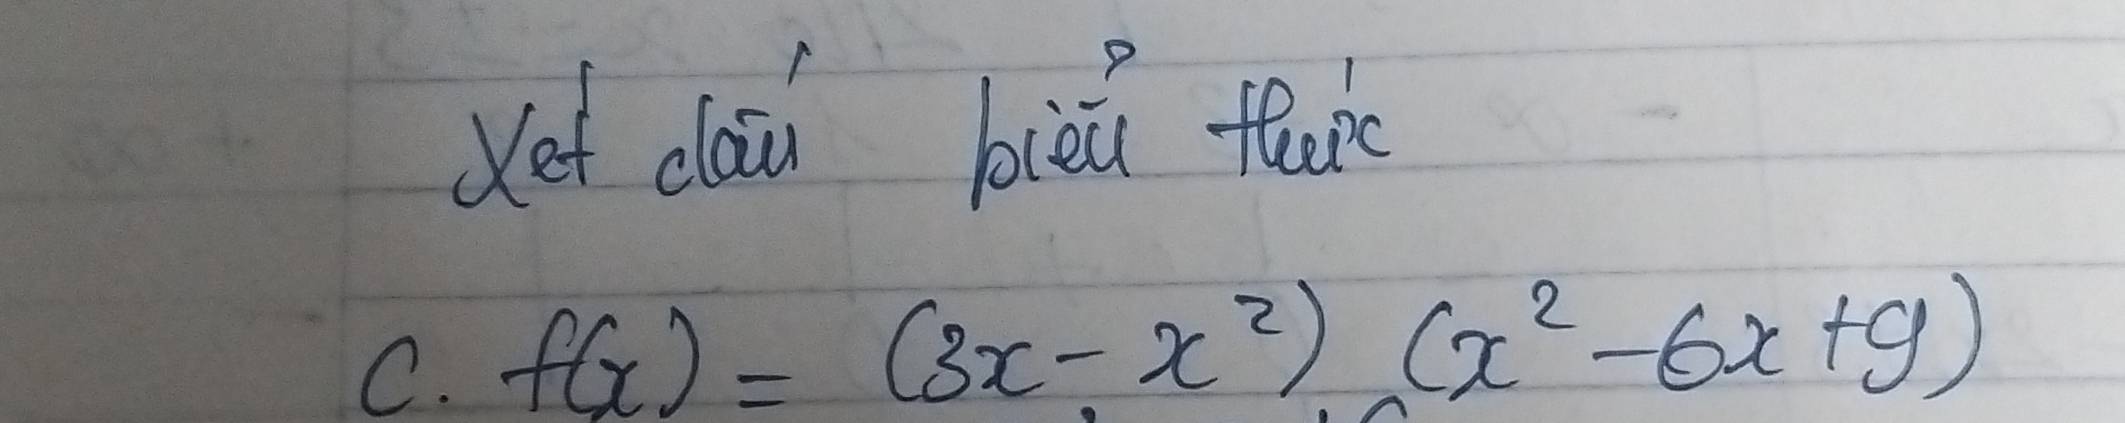 Xét dấu biểu thức
C. f(x) = (3x - x²) (x² - 6x + 9)